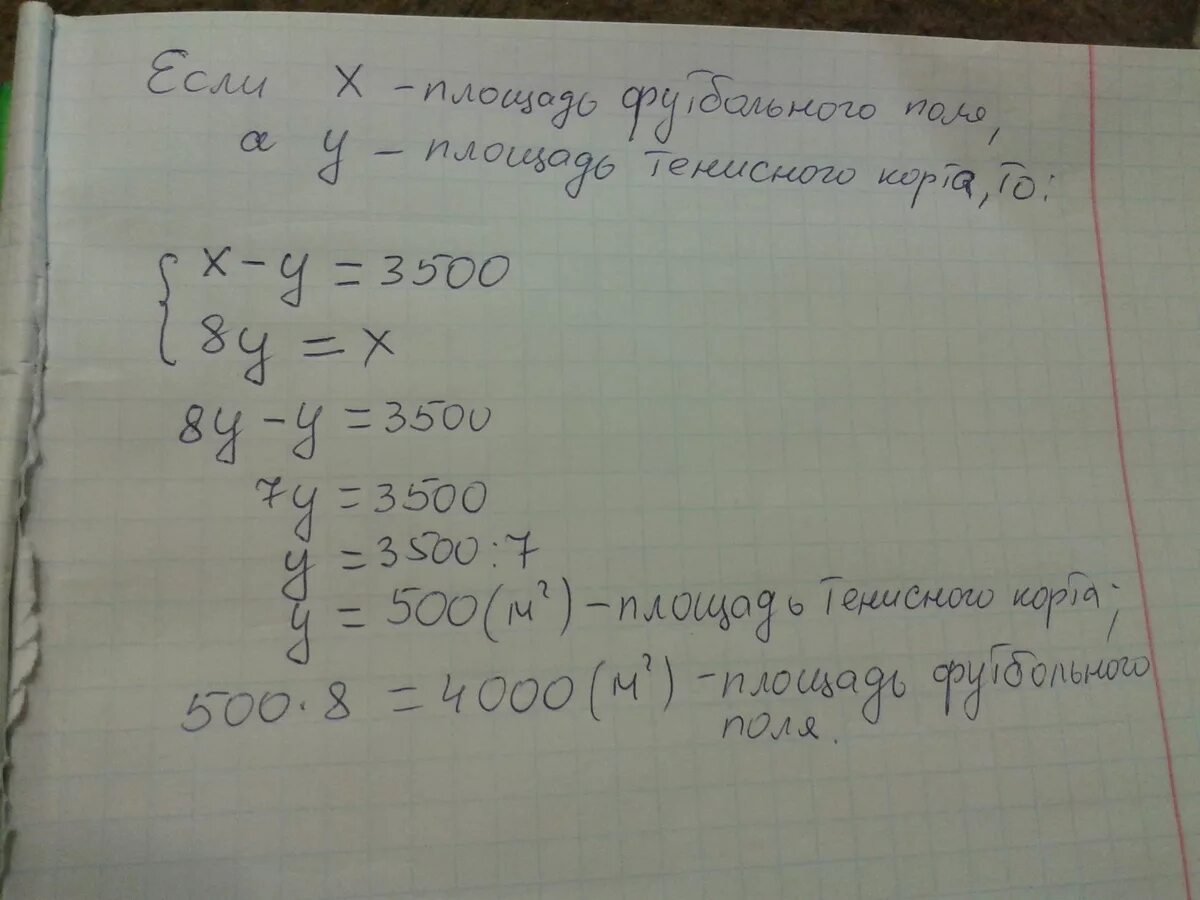 Если x - площадь футбольного поля,
а y - площадь тенисного корта, то:
x - y = 3500
8y = x
8y - y = 3500
7y = 3500
y = 3500 : 7
y = 500 (м²) - площадь тенисного корта;
500 · 8 = 4000 (м²) - площадь футбольного
поля.